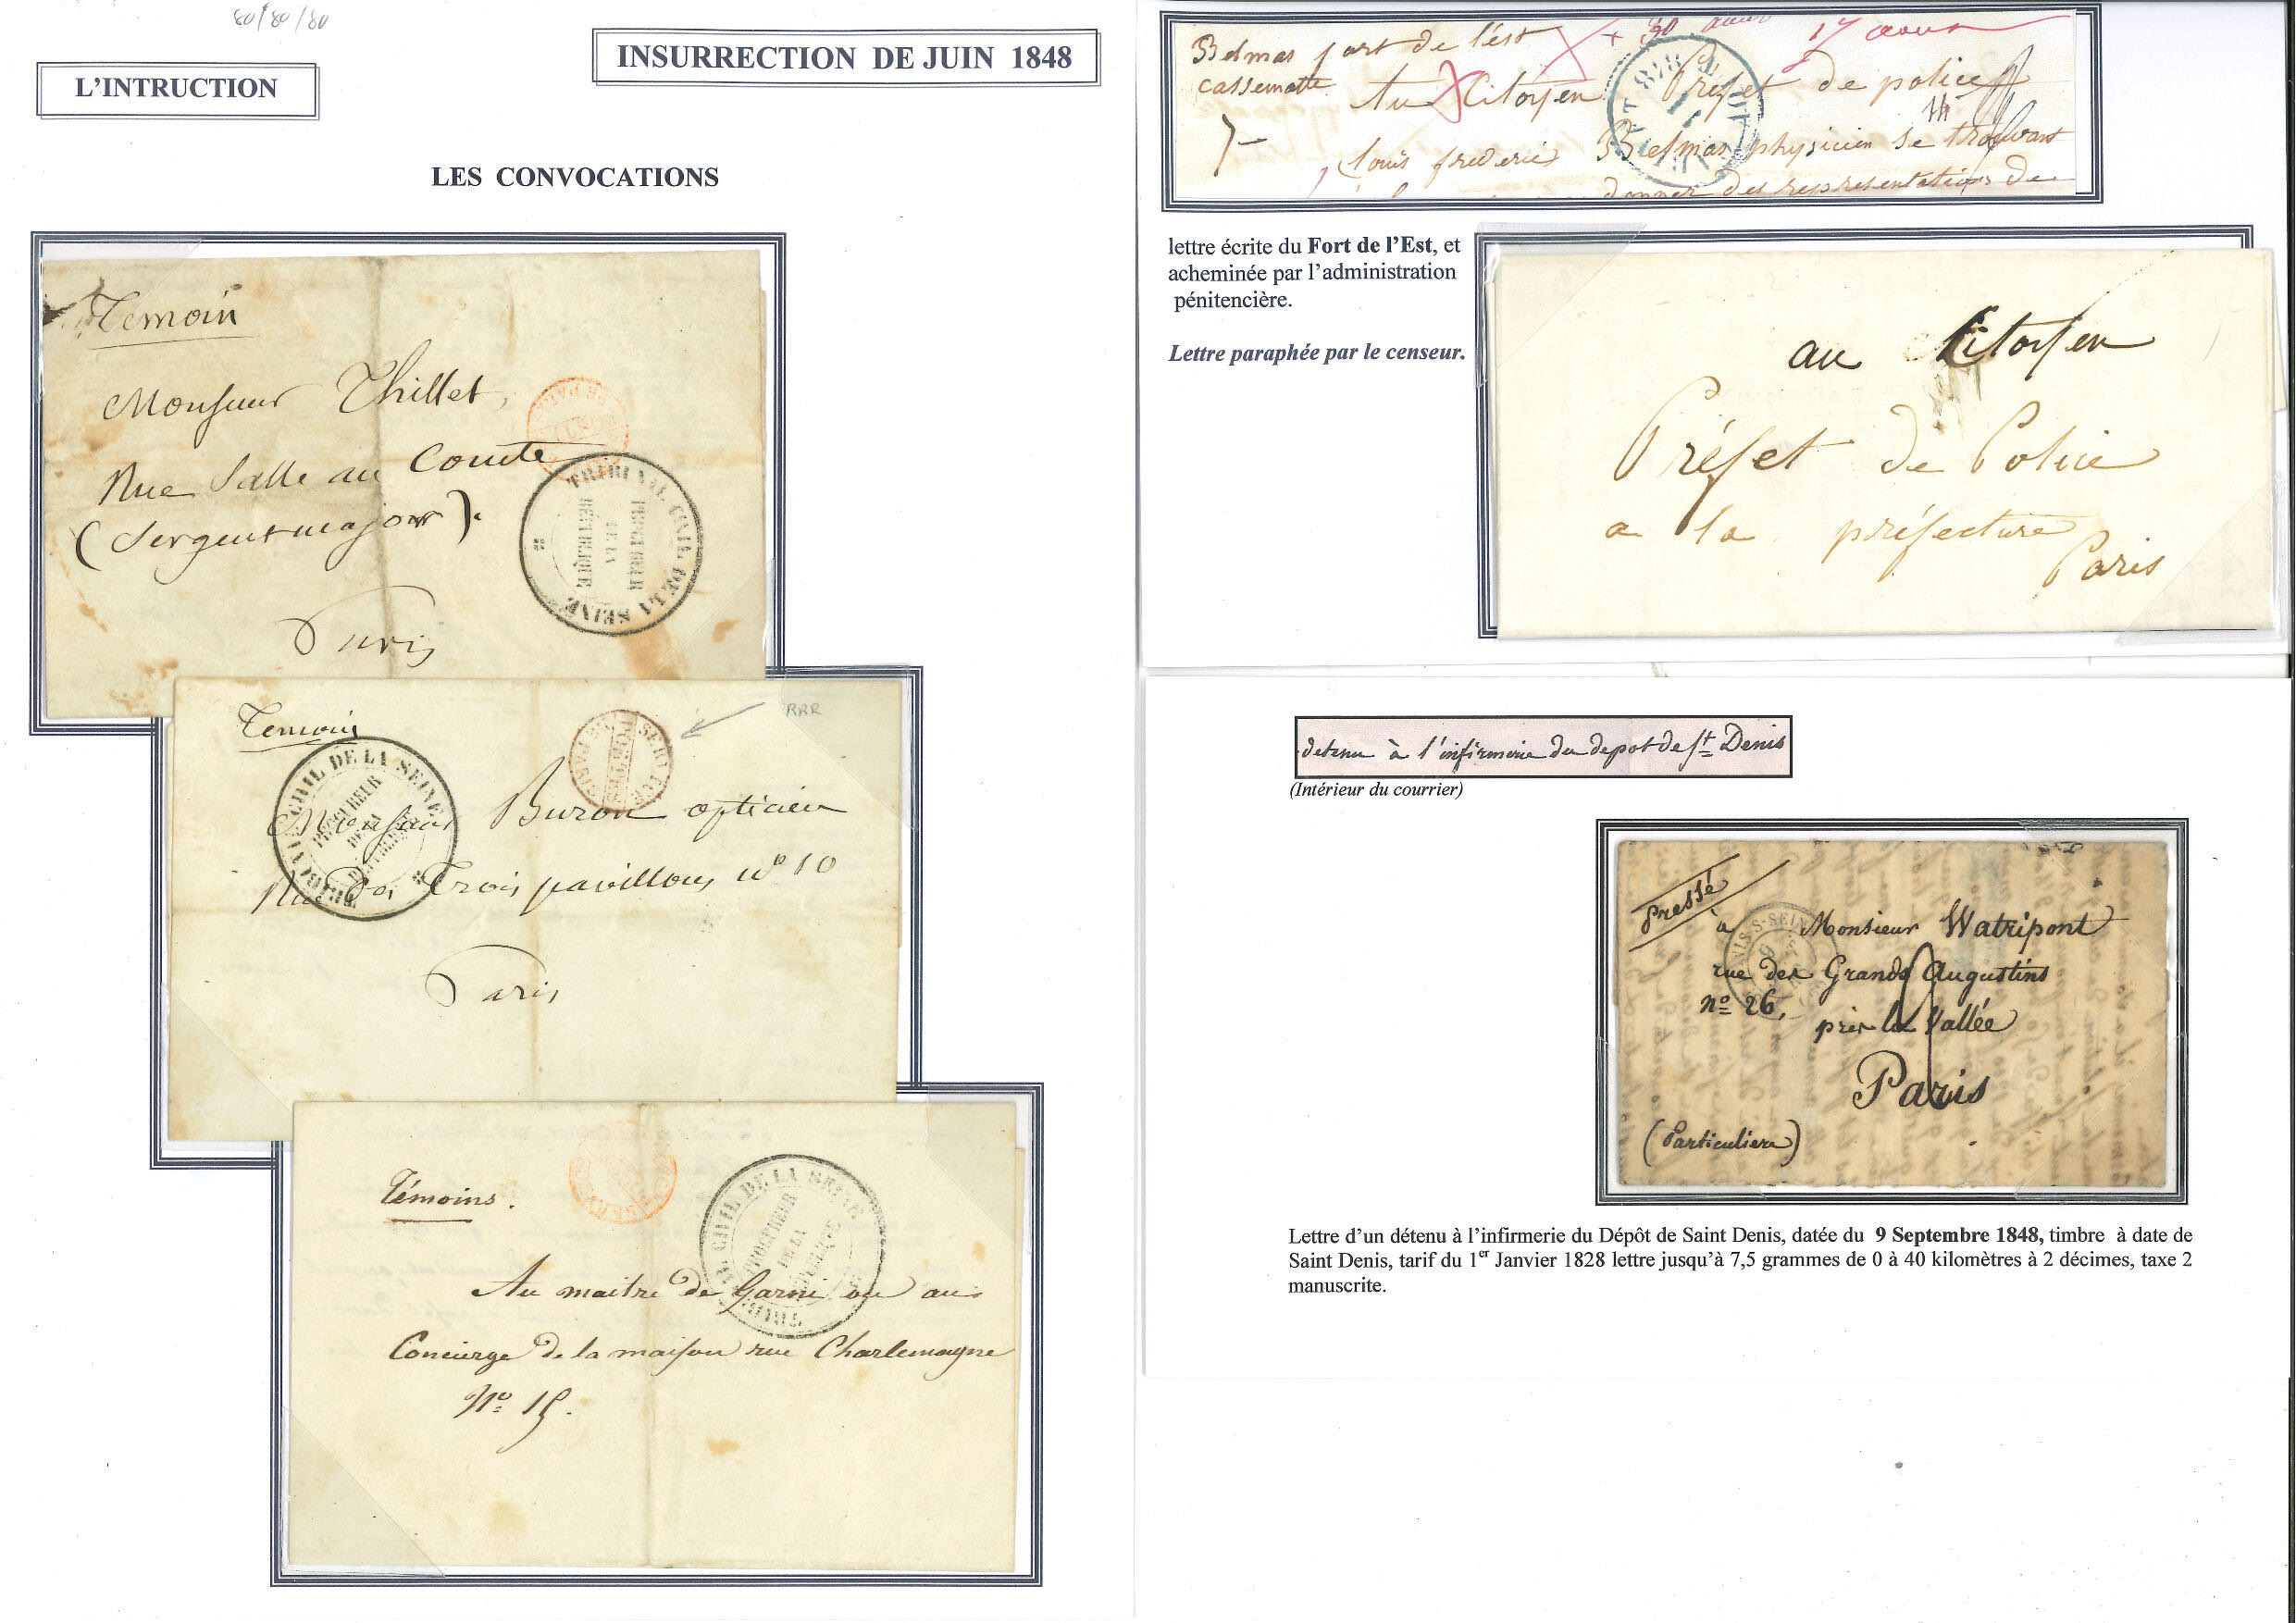 80/80/80
INSURRECTION DE JUIN 1848
L'INTRUCTION
LES CONVOCATIONS
Temoin
Monsieur Thillet,
Rue Salle au Comte
(Sergent major).
Paris
TRIBUNAL CIVIL DE LA SEINE
PROCUREUR
DE LA
REPUBLIQUE
RRR
Temoin
SERVICE
POSTES
DE PARIS
TRIBUNAL CIVIL DE LA SEINE
PROCUREUR
DE LA
REPUBLIQUE
Monsieur Buron opticien
Rue des Trois pavillons no 10
Paris
Témoins.
CIVIL DE LA SEINE
PROCUREUR
DE LA
REPUBLIQUE
Au maitre de Garni ou au
Concierge de la maison rue Charlemagne
No 15.
Belmas fort de l'est
cassematte
+ 30
17 aout
Au Citoyen Préfet de police
Louis frederic Belmas physicien se trouvant
donner des representations de
lettre écrite du Fort de l'Est, et
acheminée par l'administration
pénitencière.
Lettre paraphée par le censeur.
au Citoyen
Préfet de Police
a la préfecture
Paris
detenu à l'infirmerie du depot de St Denis
(Intérieur du courrier)
Pressé
à Monsieur Watripont
rue des Grands Augustins
no 26,
près la Vallée
Paris
(Particulière)
Lettre d'un détenu à l'infirmerie du Dépôt de Saint Denis, datée du 9 Septembre 1848, timbre à date de
Saint Denis, tarif du 1er Janvier 1828 lettre jusqu'à 7,5 grammes de 0 à 40 kilomètres à 2 décimes, taxe 2
manuscrite.